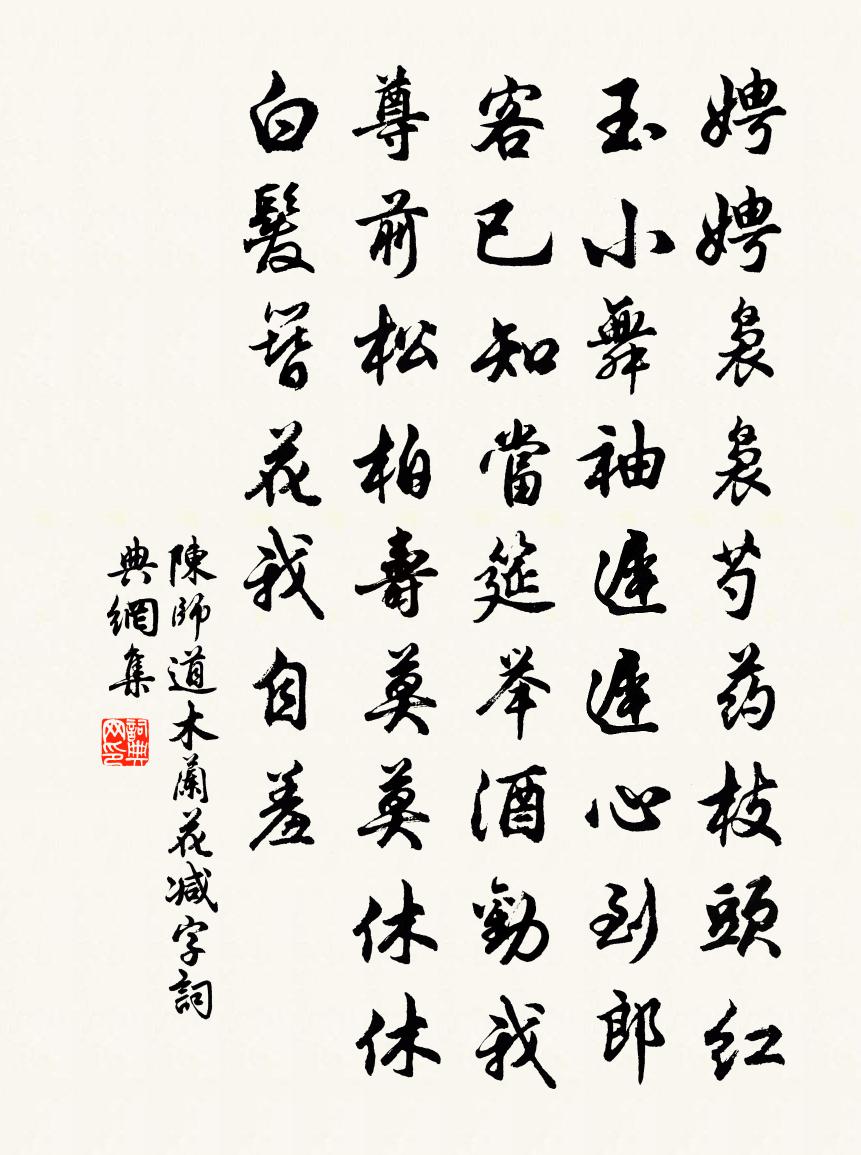 娉娉裊裊芍药枝頭红
玉小舞袖遲遲心到郎
客已知當筵举酒勸我
尊前松柏壽莫莫休休
白髮簪花我自羞
陳師道木蘭花减字詞
典網集
詞典
网印